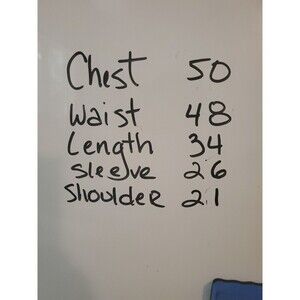 Chest 50
Waist 48
Length 34
Sleeve 26
Shoulder 21